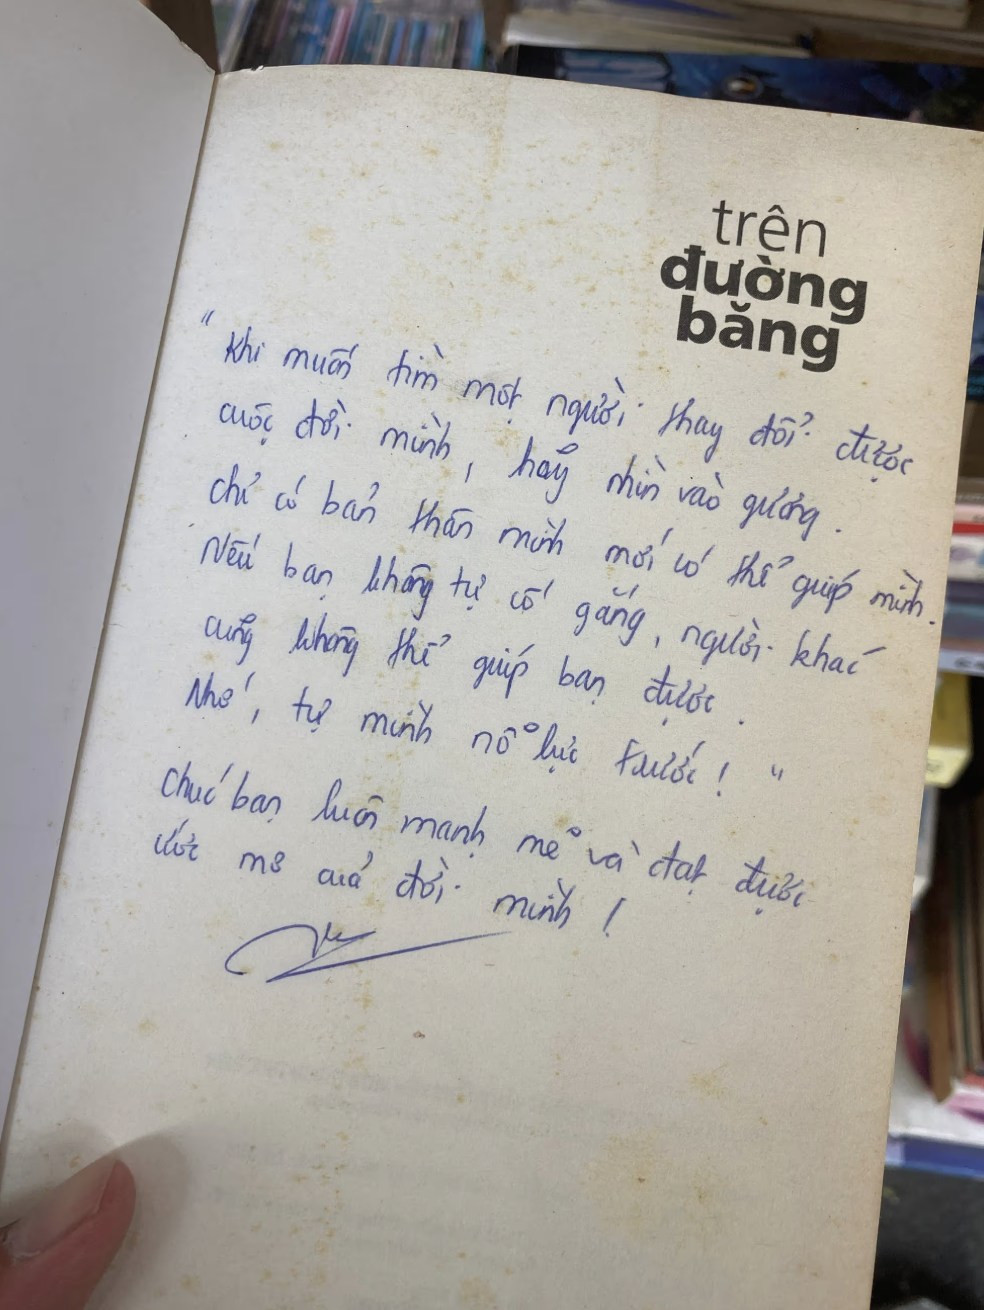 trên
đường
băng
"Khi muốn tìm một người thay đổi được
cuộc đời mình, hãy nhìn vào gương.
Chỉ có bản thân mình mới có thể giúp mình.
Nếu bạn không tự cố gắng, người khác
cũng không thể giúp bạn được.
Nhớ, tự mình nỗ lực trước! "
Chúc bạn luôn mạnh mẽ và đạt được
ước mơ cuả đời mình!